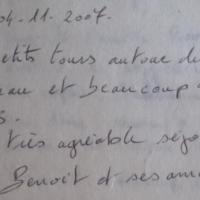 04.11.2007.
etits tours autour de
eau et beaucoup
s.
très agréable séjo
Benoit et ses ami